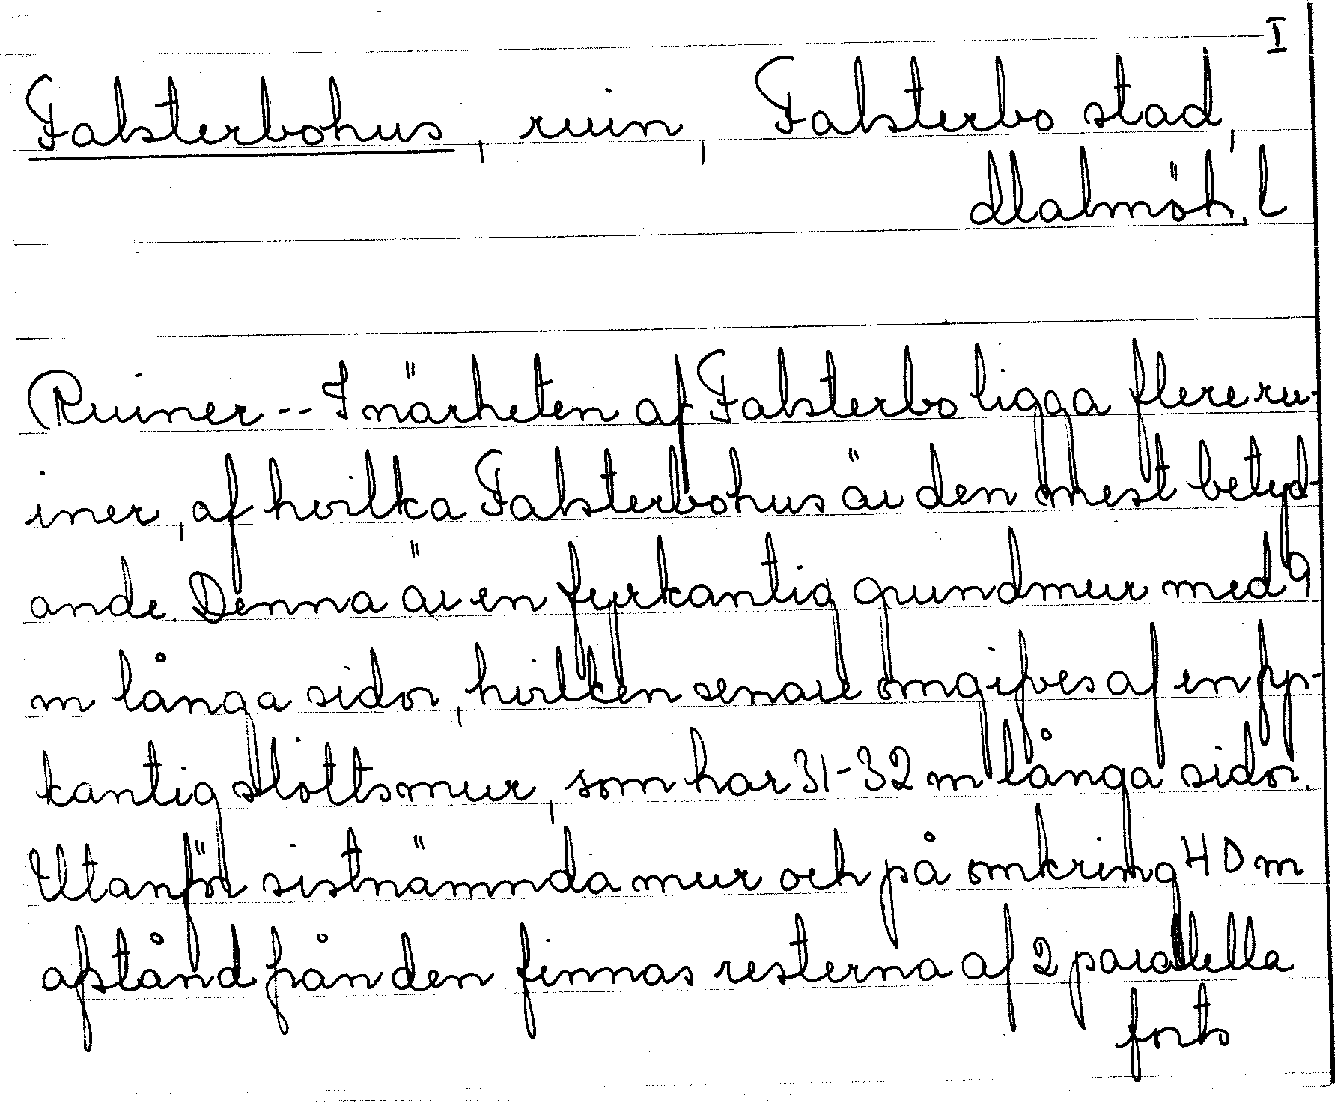 I
Falsterbohus, ruin, Falsterbo stad,
Malmöh. l
Ruiner -- I närheten af Falsterbo ligga flere ru-
iner, af hvilka Falsterbohus är den mest betyd-
ande. Denna är en fyrkantig grundmur med 9
m långa sidor, hvilken senare omgifves af en fyr-
kantig slottsmur, som har 31-32 m långa sidor.
Utanför sistnämnda mur och på omkring 40 m
afstånd från den finnas resterna af 2 paralella
forts